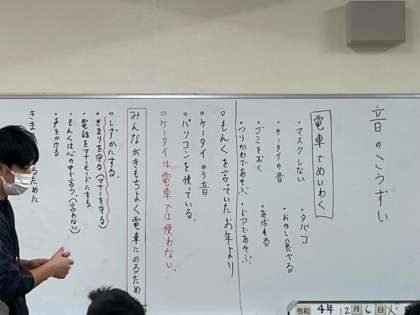 音のこうずい
電車でめいわく
・マスクしない
・ケータイの音
・ゴミをおく
・つりかわであそぶ
・タバコ
・おかし食べる
・あばれる
・ドアであそぶ
○もんくを言っていたお年より
○ケータイ鳴り音
○パソコンを使っている。
○ケータイは電車では使わない。
みんながきもちよく電車にのるため
○しずかにする
・きまりを守る(マナーを守る)
・電話をマナーモードにする
・もんくは心の中で言う(言わない)
・声をかける
令和 4年 12月 6日 火